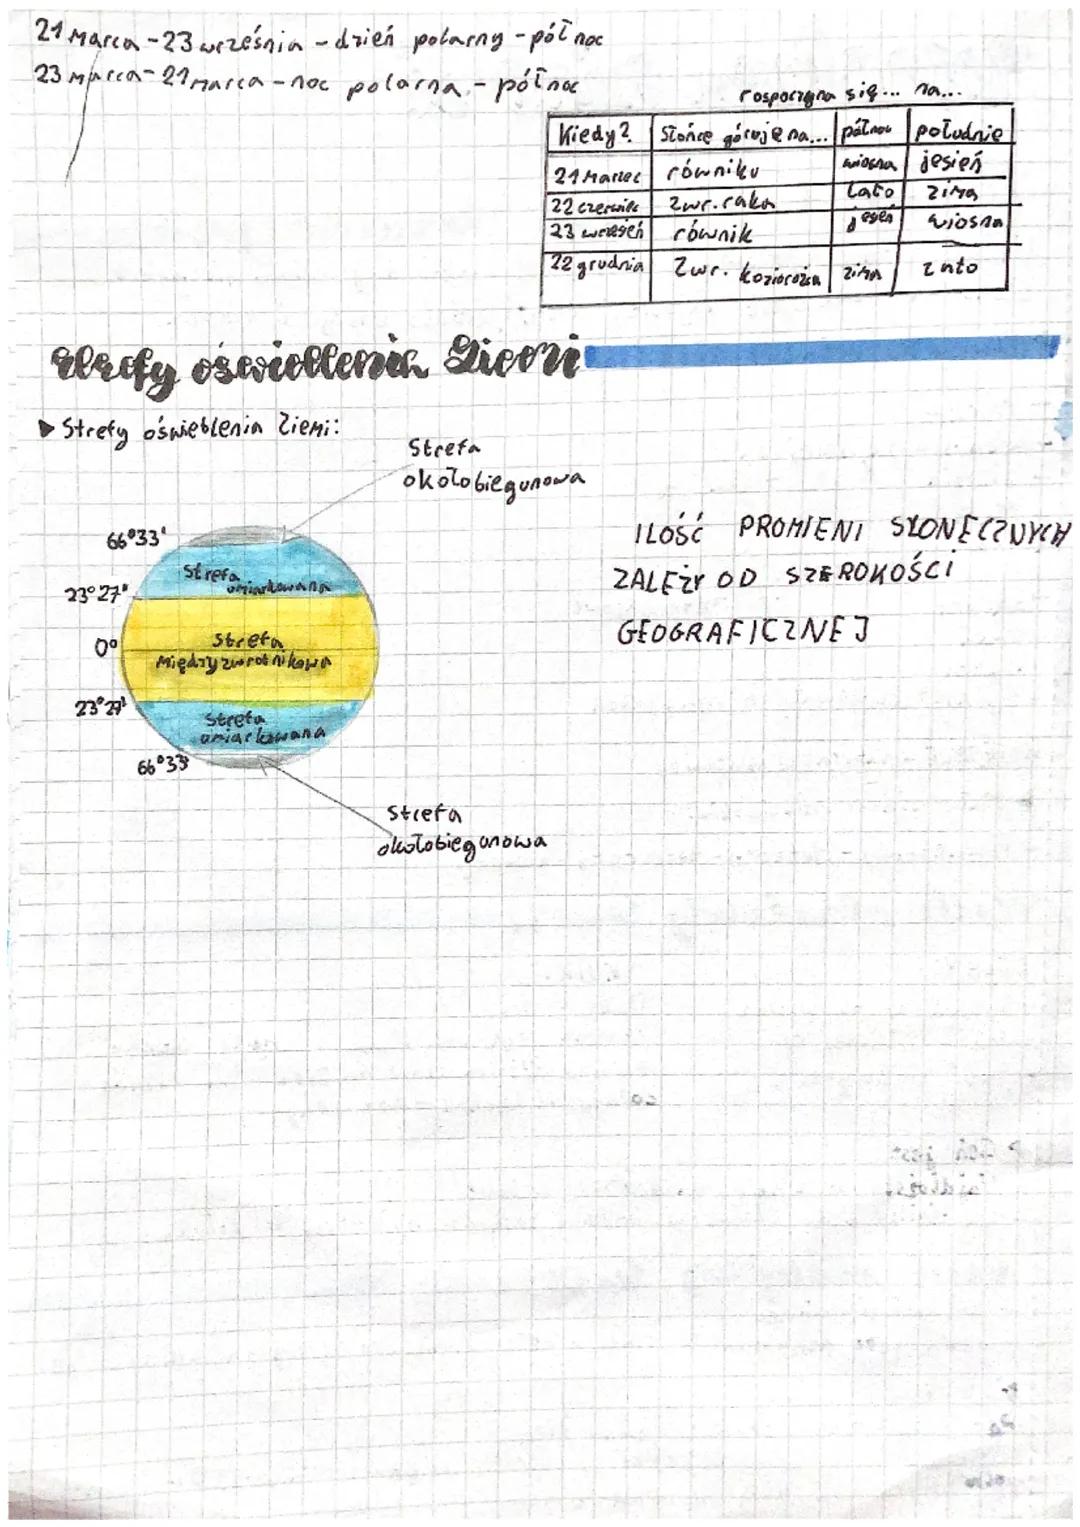 21 Marca - 23 września - dzień polarny - północ
23 Marca - 21 marca - noc polarna - północ
rospoczyna się... na...
Kiedy? Słońce góruje na... północ południe
21 Marzec równiku wiosna jesień
22 czerwiec zwr. raka Lato zima
23 wrzesień równik jesień wiosna
22 grudnia Zwr. koziorożca zima
Strefy oświetlenia Ziemi
▶ Strefy oświetlenia Ziemi:
Strefa
okołobiegunowa
66°33'
Strefa
umiarkowana
23°27'
0°
Strefa
Międzyzwrotnikowa
23°27'
Strefa
umiarkowana
66°33'
Strefa
okołobiegunowa
ILOŚĆ PROMIENI SŁONECZNYCH
ZALEŻY OD SZEROKOŚCI
GEOGRAFICZNEJ